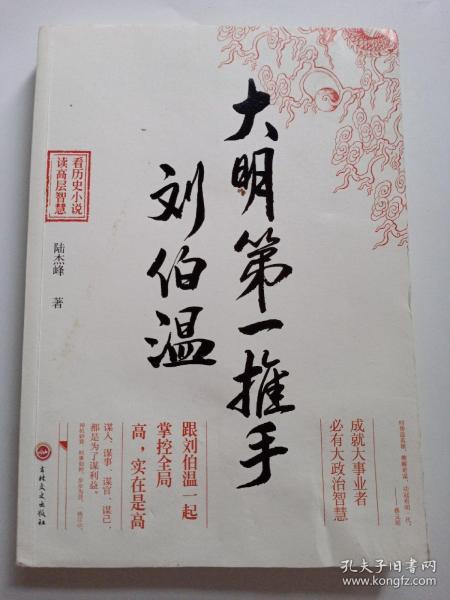 大明第一推手
刘伯温
看历史小说
读高层智慧
陆杰峰 著
成就大事业者
必有大政治智慧
跟刘伯温一起
掌控全局
高，实在是高
谋人、谋事、谋官、谋己，
都是为了谋利益。
吉林文史出版社
孔夫子旧书网
www.kongfz.com